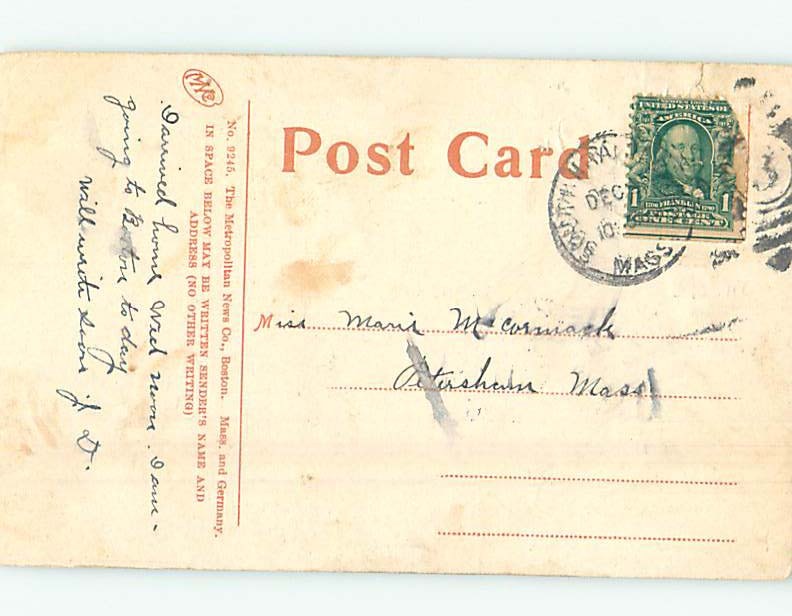 MNC
No. 9245. The Metropolitan News Co., Boston. Mass. and Germany.
IN SPACE BELOW MAY BE WRITTEN SENDER'S NAME AND
ADDRESS (NO OTHER WRITING)
I arrived home Wed noon. I am -
going to Boston to day
Will write soon J. D.
Post Card
UNITED STATES OF
AMERICA
1 1
FRANKLIN
POSTAGE
ONE CENT
DEC
MASS
Miss Marie McCormack
Petersham Mass